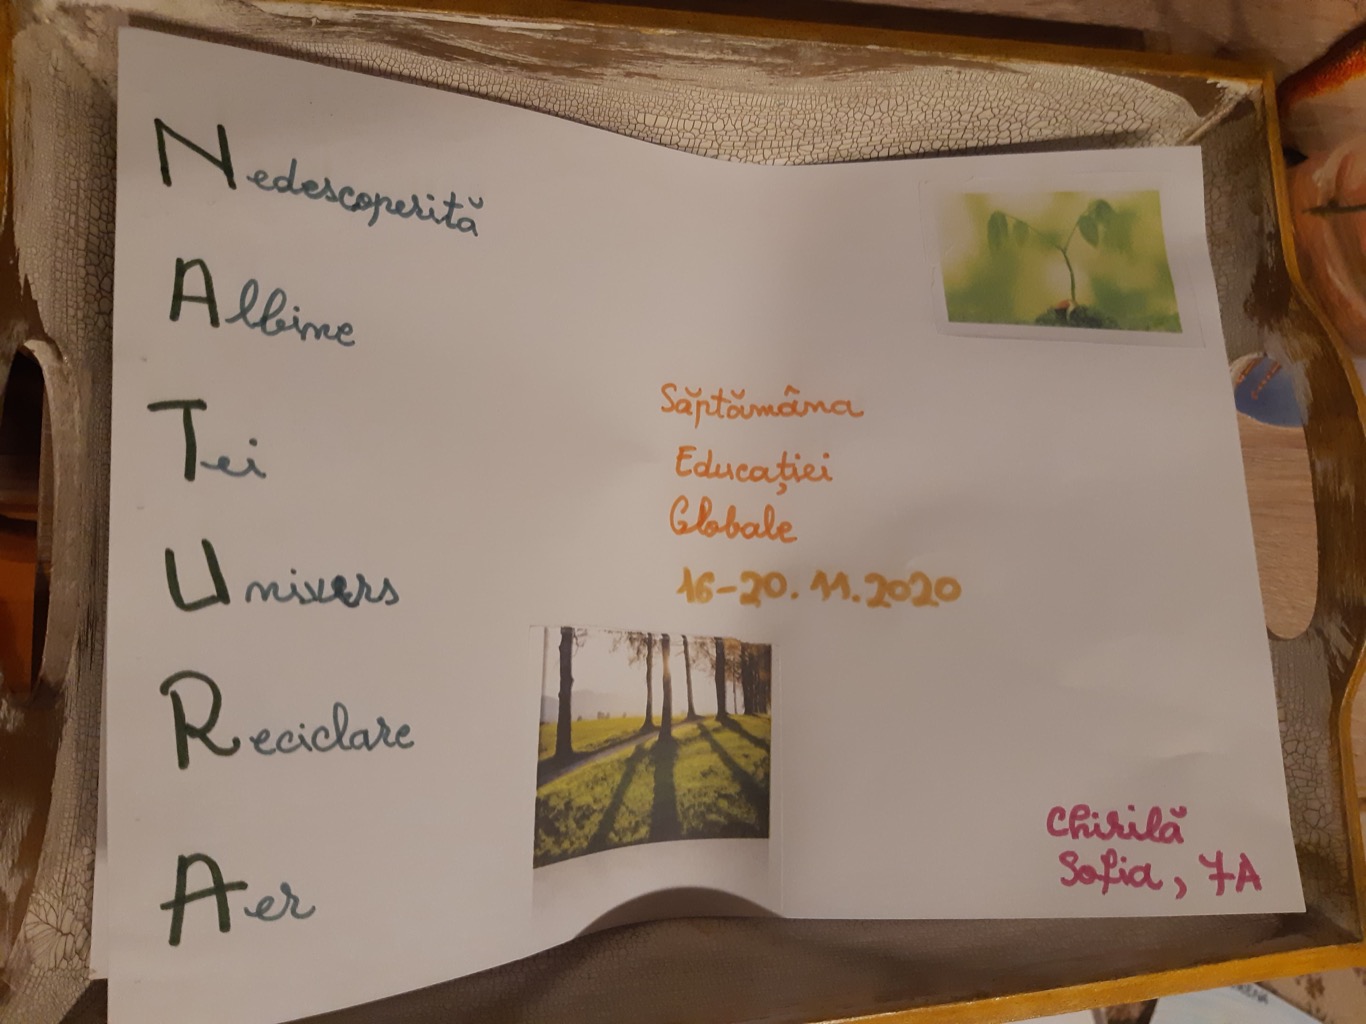 Nedescoperită
Albine
Tei
Univers
Reciclare
Aer
Săptămâna
Educației
Globale
16-20.11.2020
Chirilă
Sofia, 7A